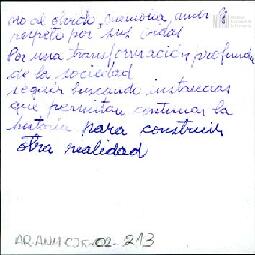 no al olvido, memoria, amor y
respeto por sus vidas
Por una transformación profunda
de la sociedad
seguir buscando instancias
que permitan continuar la
historia para construir
otra realidad
AR.ANM CJE-02-213